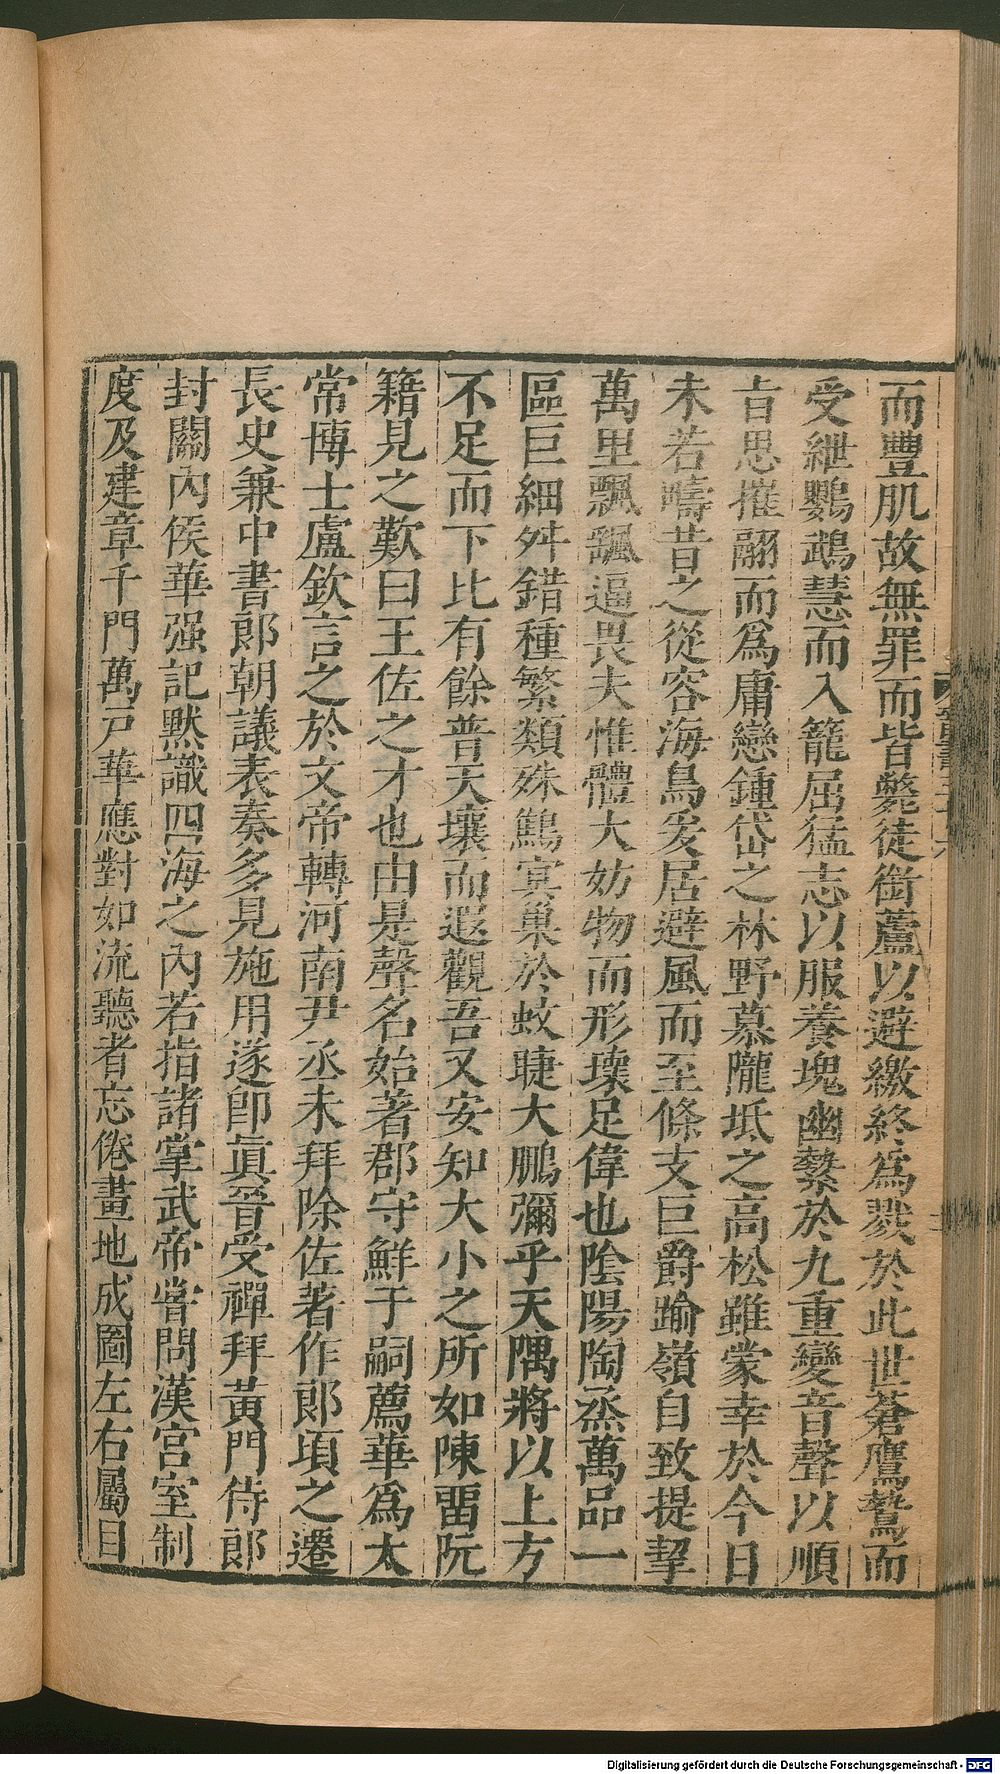 而豐肌故無罪而皆斃徒銜蘆以避繳終爲戮於此世蒼鷹鷙而
受紲鸚鵡慧而入籠屈猛志以服養塊幽縶於九重變音聲以順
㫖思摧翮而爲庸戀鍾岱之林野慕隴坻之高松雖蒙幸於今日
未若疇昔之從容海鳥爰居避風而至條支巨爵踰嶺自致提挈
萬里飄颻逼畏夫惟體大妨物而形瓌足偉也陰陽陶烝萬品一
區巨細舛錯種繁類殊鷦㝠巢於蚊睫大鵬彌乎天隅將以上方
不足而下比有餘普天壤而遐觀吾又安知大小之所如陳畱阮
籍見之歎曰王佐之才也由是聲名始著郡守鮮于嗣薦華爲太
常博士盧欽言之於文帝轉河南尹丞未拜除佐著作郎頃之遷
長史兼中書郎朝議表奏多見施用遂卽眞晉受禪拜黃門侍郎
封關內侯華强記默識四海之內若指諸掌武帝甞問漢宮室制
度及建章千門萬戸華應對如流聽者忘倦畫地成圖左右屬目
Digitalisierung gefördert durch die Deutsche Forschungsgemeinschaft - DFG